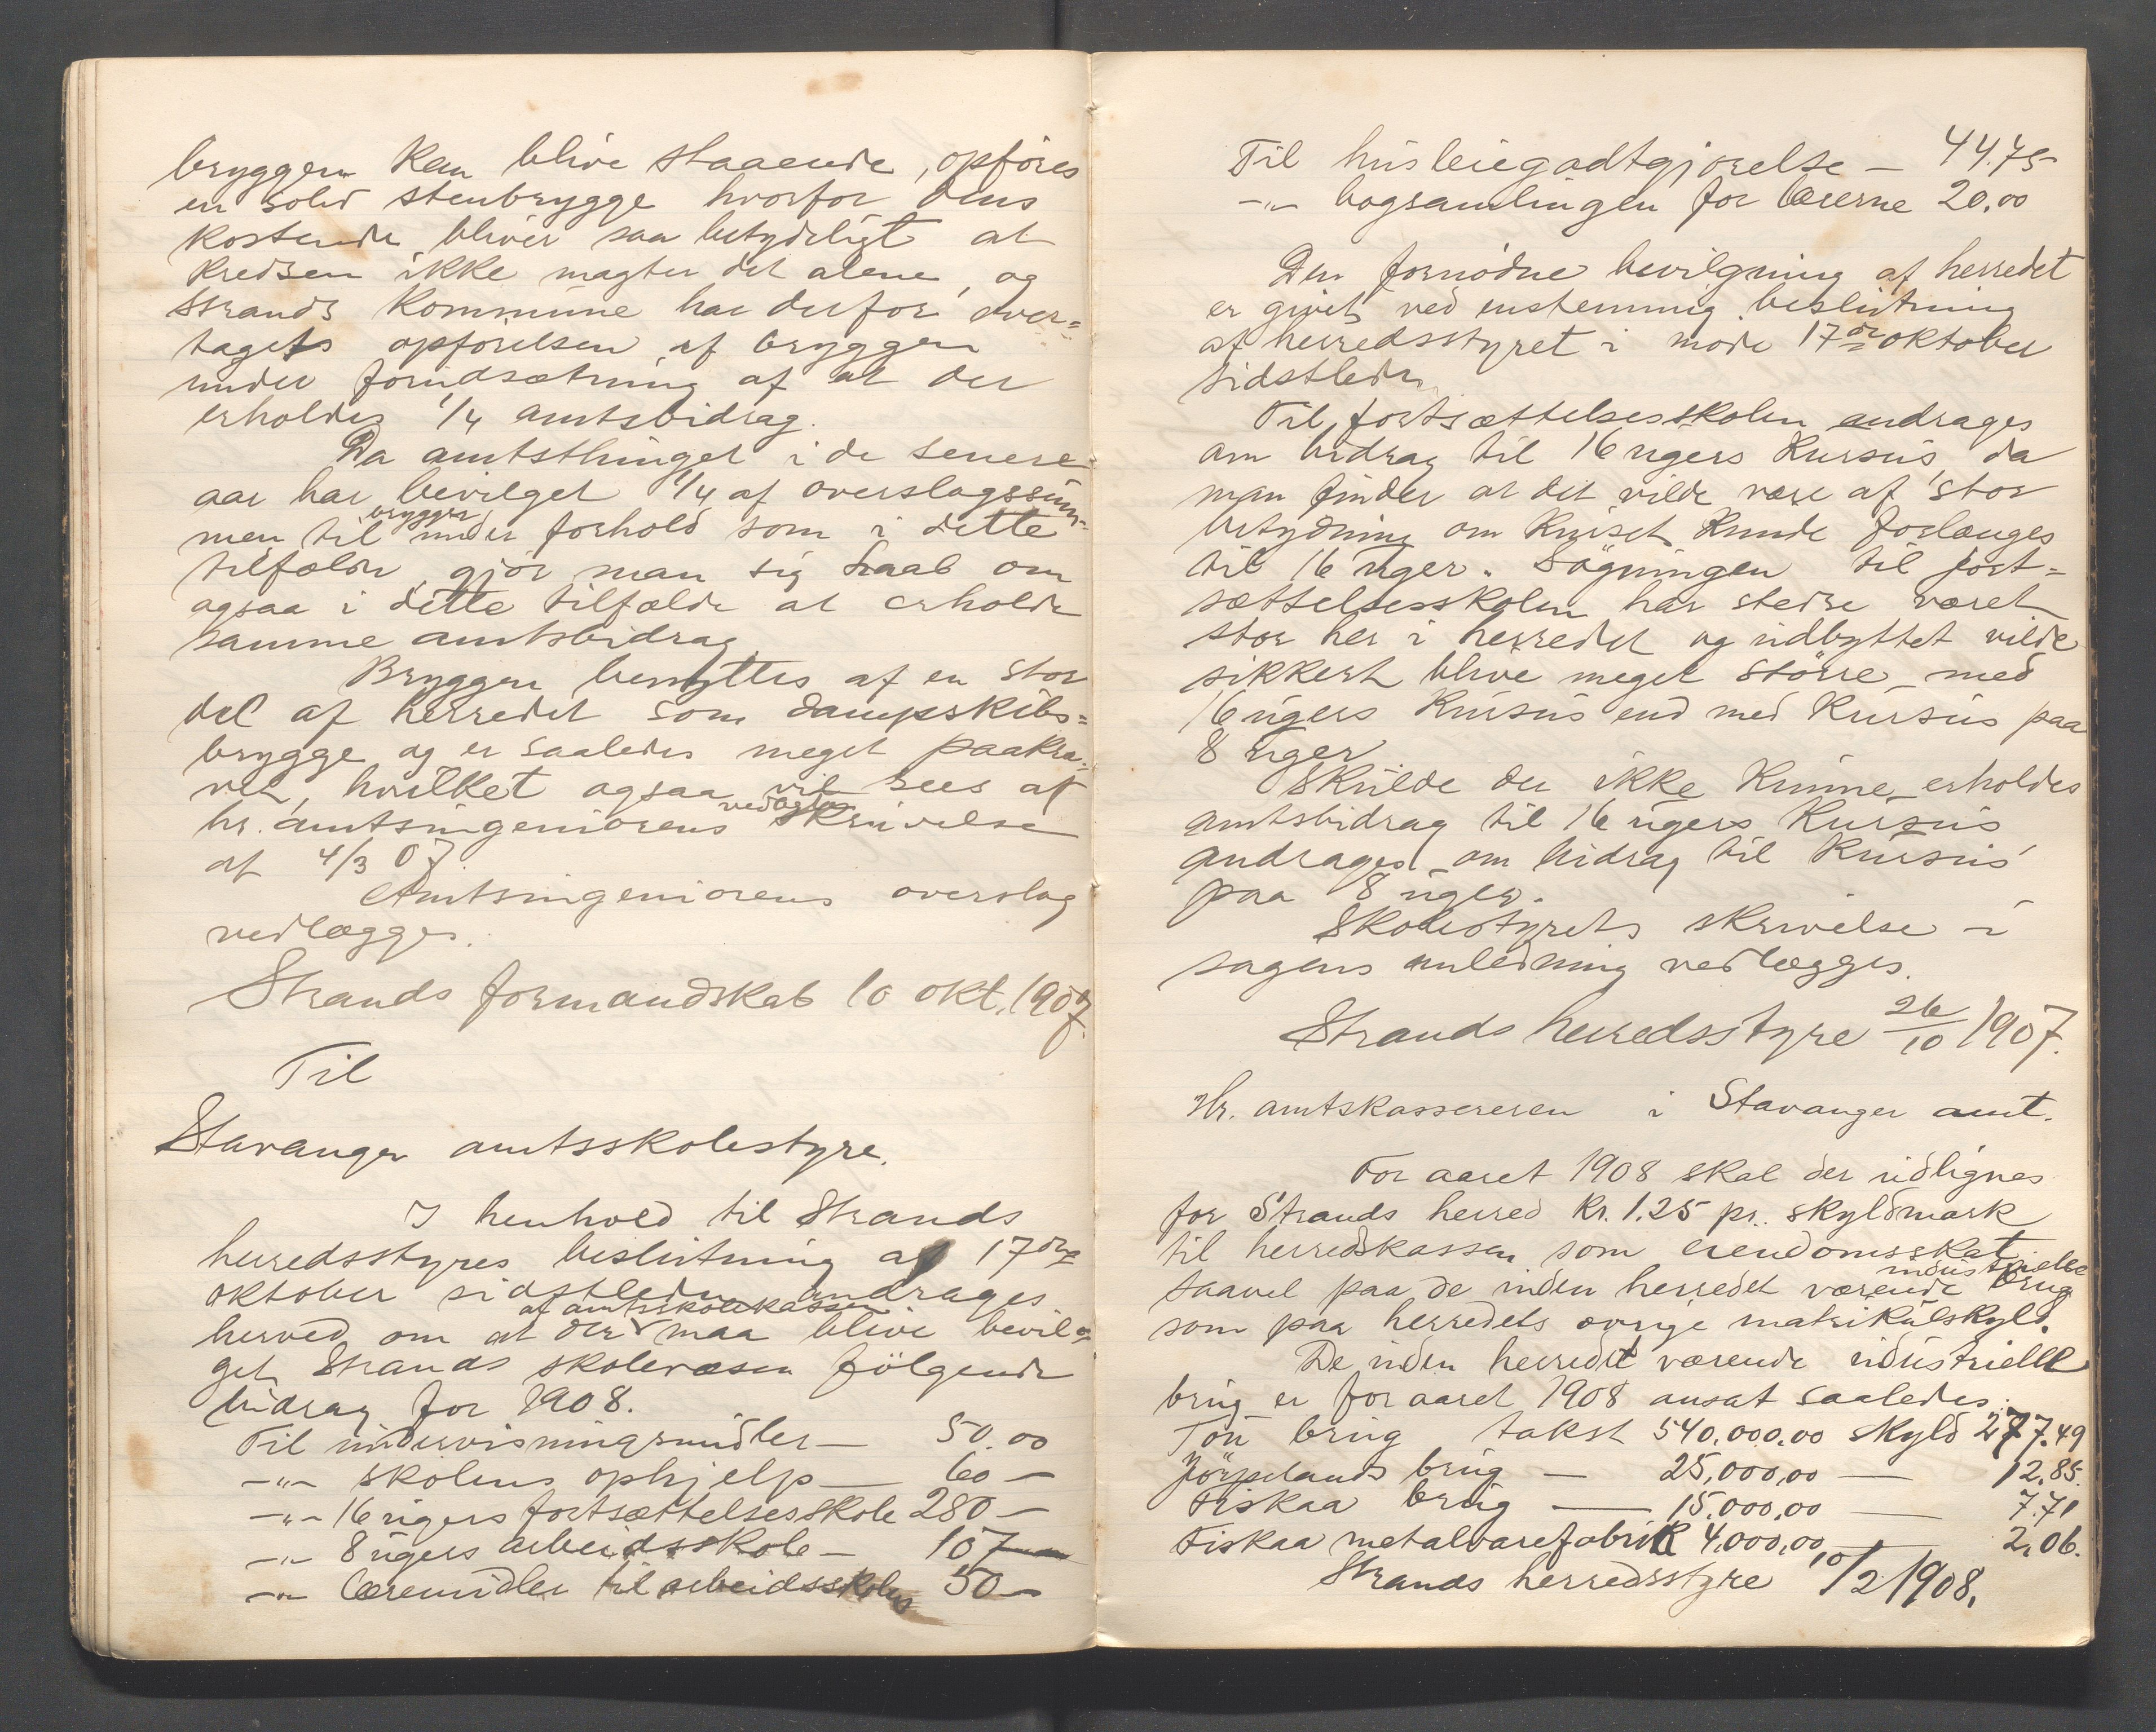 bryggen kan blive staaende, opføres
en solid stenbrygge hvorfor dens
kostende bliver saa betydeligt at
kredsen ikke magter det alene, og
Strands kommune har derfor over-
tagets opførelsen af bryggen
under forudsætning af at der
erholdes 1/4 amtsbidrag.
Da amtsthinget i de senere
aar har bevilget 1/4 af overslagssum-
men til brygger under forhold som i dette
tilfælde, gjør man sig haab om
ogsaa i dette tilfælde at erholde
samme amtsbidrag
Bryggen benyttes af en stor
del af herredet som dampskibs-
brygge og er saaledes meget paakra-
vet, hvilket ogsaa vil sees af
hr. amtsingeniørens vedlagte skrivelse
af 4/3 07.
Amtsingeniørens overslag
vedlægges.
Strands formandskab 10 okt. 1907.
Til
Stavanger amtsskolestyre.
I henhold til Strands
herredsstyres beslutning af 17de
oktober sidstleden andrages
herved om at der af amtsskolekassen maa blive bevil-
get Strands skolevæsen følgende
bidrag for 1908.
Til undervisningsmidler — 50.00
-"- skolens ophjelp — 60 —
-"- 16 ugers fortsættelsesskole 280 —
-"- 8 ugers arbeidsskole — 107 —
-"- læremidler til arbeidsskolen 50 —
Til husleiegodtgjørelse — 44.75
-"- bogsamlingen for læserne 20.00
Den fornødne bevilgning af herredet
er givet ved enstemmig beslutning
af herredsstyret i møde 17de oktober
sidstleden
Til fortsættelsesskolen andrages
om bidrag til 16 ugers kursus, da
man finder at det vilde være af stor
betydning om kurset kunde forlænges
til 16 uger. Søgningen til fort-
sættelsesskolen har stedse været
stor her i herredet og udbyttet vilde
sikkert blive meget større med
16 ugers kursus end med kursus paa
8 uger.
Skulde der ikke kunne erholdes
amtsbidrag til 16 ugers kursus
andrages om bidrag til kursus
paa 8 uger.
Skolestyrets skrivelse i
sagens anledning vedlægges.
Strands herredsstyre 26/10 1907.
Hr. amtskassereren i Stavanger amt.
For aaret 1908 skal der udlignes
for Strands herred kr. 1.25 pr. skyldmark
til herredskassen som eiendomsskat
saavel paa de inden herredet værende industrielle brug
som paa herredets øvrige matrikulskyld.
De inden herredet værende industrielle
brug er for aaret 1908 ansat saaledes:
Tou brug takst 540.000.00 skyld 277.49
Jørpelands brug — 25,000,00 — 12.85.
Fiskaa brug — 15.000,00 — 7.71
Fiskaa metalvarefabrik 4.000,00 — 2.06.
Strands herredsstyre 10/2 1908.